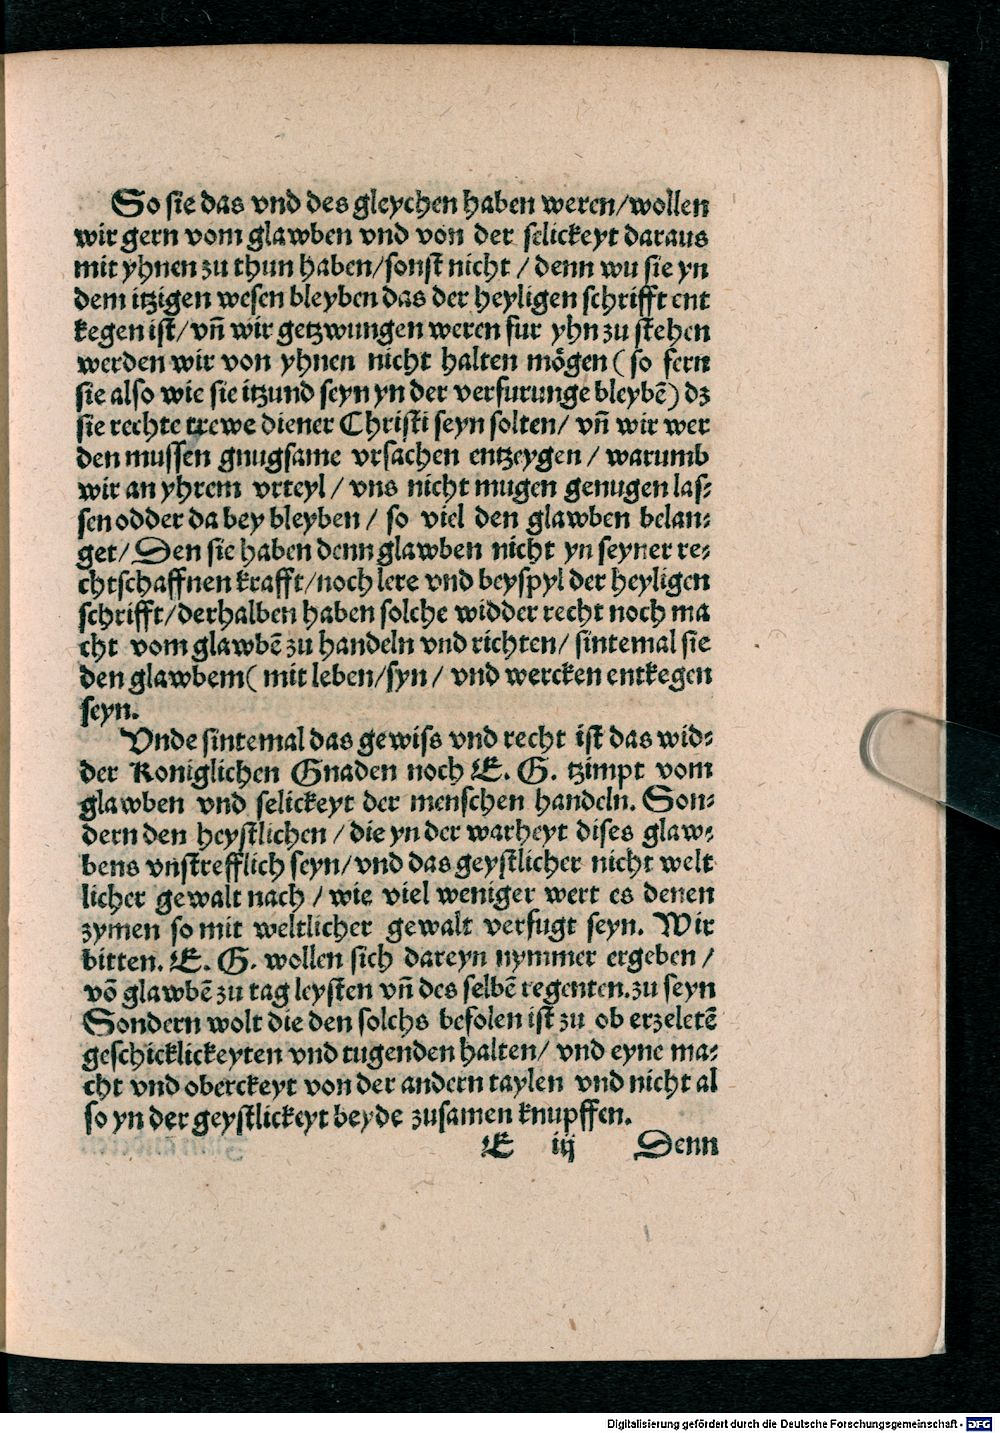 So sie das vnd des gleychen haben weren/wollen
wir gern vom glawben vnd von der selickeyt daraus
mit yhnen zu thun haben/sonst nicht / denn wu sie yn
dem itzigen wesen bleyben das der heyligen schrifft ent
kegen ist/ vn̄ wir getzwungen weren fur yhn zu stehen
werden wir von yhnen nicht halten mögen ( so fern
sie also wie sie itzund seyn yn der verfurunge bleybē) dz
sie rechte trewe diener Christi seyn solten/ vn̄ wir wer
den mussen gnugsame vrsachen entzeygen / warumb
wir an yhrem vrteyl / vns nicht mugen genugen las⸗
sen odder da bey bleyben / so viel den glawben belan⸗
get/ Den sie haben denn glawben nicht yn seyner re⸗
chtschaffnen krafft/noch lere vnd beyspyl der heyligen
schrifft/derhalben haben solche widder recht noch ma
cht vom glawbē zu handeln vnd richten/ sintemal sie
den glawbem( mit leben/syn / vnd wercken entkegen
seyn.
Vnde sintemal das gewiss vnd recht ist das wid⸗
der Koniglichen Gnaden noch E. G. tzimpt vom
glawben vnd selickeyt der menschen handeln. Son⸗
dern den heystlichen / die yn der warheyt dises glaw⸗
bens vnstrefflich seyn/vnd das geystlicher nicht welt
licher gewalt nach / wie viel weniger wert es denen
zymen so mit weltlicher gewalt verfugt seyn. Wir
bitten. E. G. wollen sich dareyn nymmer ergeben /
vō glawbē zu tag leysten vn̄ des selbē regenten.zu seyn
Sondern wolt die den solchs befolen ist zu ob erzeletē
geschicklickeyten vnd tugenden halten/ vnd eyne ma⸗
cht vnd oberckeyt von der andern taylen vnd nicht al
so yn der geystlickeyt beyde zusamen knupffen.
E iij Denn
Digitalisierung gefördert durch die Deutsche Forschungsgemeinschaft - DFG